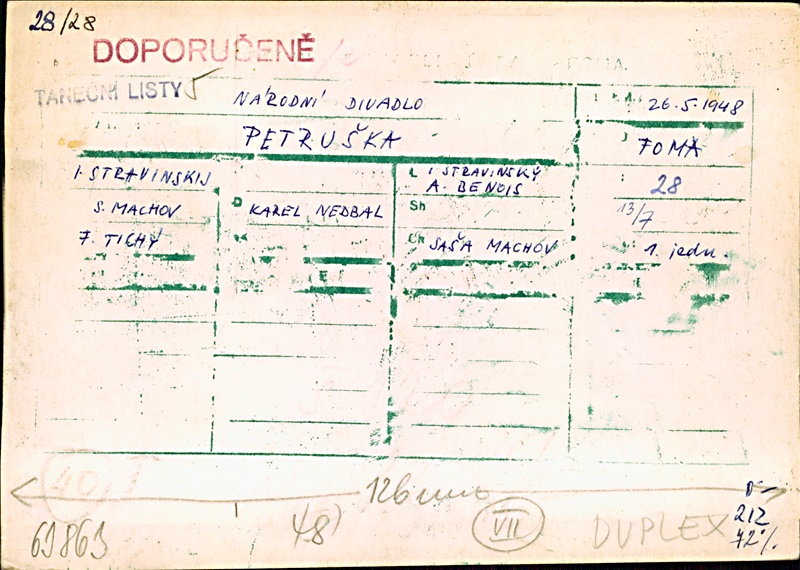 28/28
DOPORUČENĚ
TANEČNÍ LISTY 5
NÁRODNÍ DIVADLO 26.5.1948
PETRUŠKA FOMA
I. STRAVINSKIJ L I STRAVINSKÝ
A. BENOIS 28
S. MACHOV D KAREL NEDBAL Sh 13/7
F. TICHÝ Ch SAŠA MACHOV 1. jedn.
40
126 mm
69869 48) VII DUPLEX 212
72%